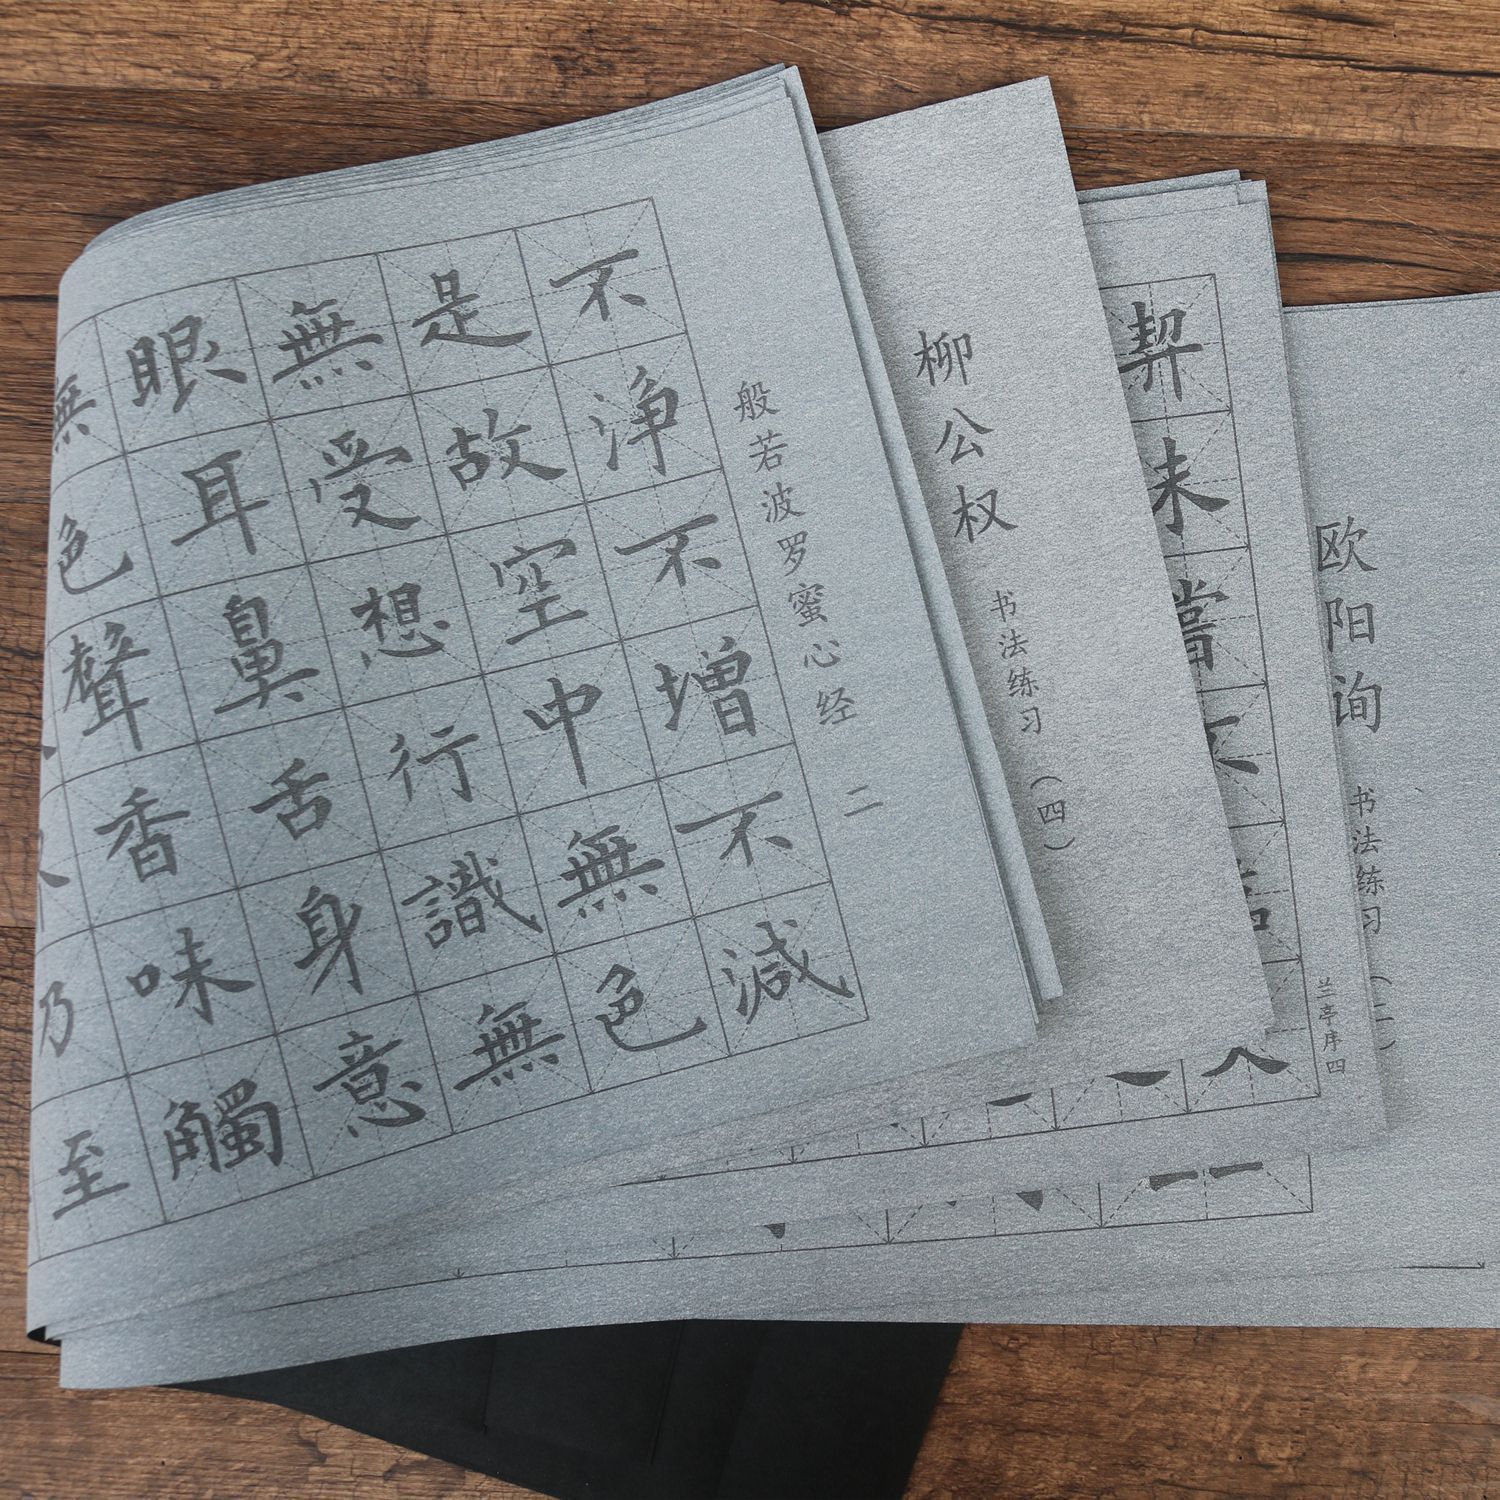 般若波罗蜜心经 二
不净不增不减
是故空中無色
無受想行識無
眼耳鼻舌身意
無色聲香味觸
至
乃
柳公权
书法练习(四)
契未嘗不
兰亭序四
欧阳询
书法练习(二)